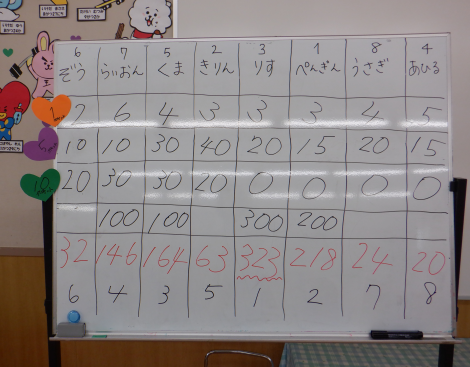 6 7 5 2 3 1 8 4
ぞう らいおん くま きりん りす ぺんぎん うさぎ あひる
2 6 4 3 3 3 4 5
10 10 30 40 20 15 20 15
20 30 30 20 0 0 0 0
100 100 300 200
32 146 164 63 323 218 24 20
6 4 3 5 1 2 7 8